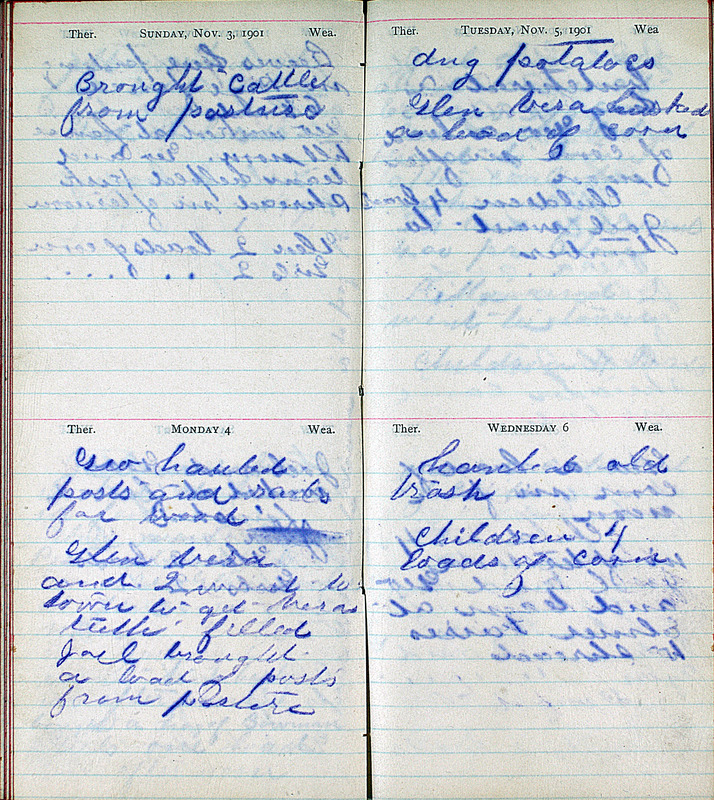 Ther. SUNDAY, NOV. 3, 1901 Wea.
Brought Cattle
from pasture
Ther. MONDAY 4 Wea.
Geo hauled
posts and
for wood
Glen Vera
and I went to
town to get Veras
teeth filled
Joel brought
a load of posts
from pasture
Ther. TUESDAY, NOV. 5, 1901 Wea
dug potatoes
Glen Vera husked
a load of corn
Ther. WEDNESDAY 6 Wea.
hauled old
trash
children 4
loads of corn